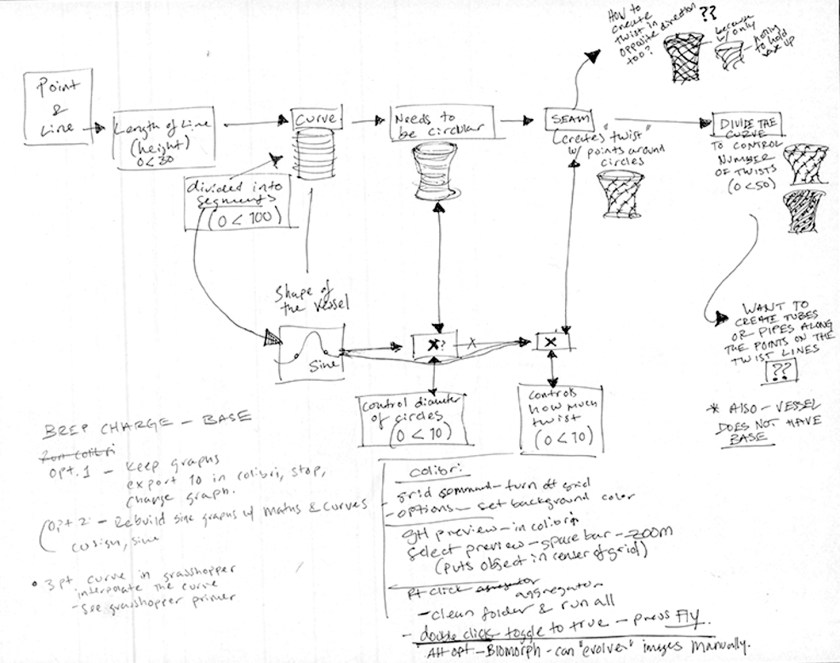 HOW TO
CREATE
TWIST IN
OPPOSITE DIRECTION
TOO?
??
because
w/ only
to hold
up
Point
&
Line
Length of Line
(height)
0<30
CURVE
Needs to
be circular
SEAM
(creates "twist"
w/ points around
circles
DIVIDE THE
CURVE
TO CONTROL
NUMBER
OF TWISTS
(0<50)
divided into
segments
(0<100)
Shape of
the vessel
Sine
X?
X
X
control diameter
of circles
(0<10)
controls
how much
twist
(0<10)
WANT TO
CREATE TUBES
OR PIPES ALONG
THE POINTS ON THE
TWIST LINES
??
* ALSO - VESSEL
DOES NOT HAVE
BASE
BREP CHARGE - BASE
Run colibri
opt. 1 - Keep graphs
export 10 in colibri, stop,
change graph.
(opt 2 - Rebuild sine graphs w/ maths & curves
cosign, sine
• 3 pt curve in grasshopper
interpolate the curve
- see grasshopper primer
colibri
grid command - turn off grid
- options - set background color
gH preview - in colibri
select preview - space bar - zoom
(puts object in center of grid)
Rt click aggregator
aggregator
- clean folder & run all
- double click toggle to true - press Fly.
Alt opt - Biomorph - can "evolver" images manually.